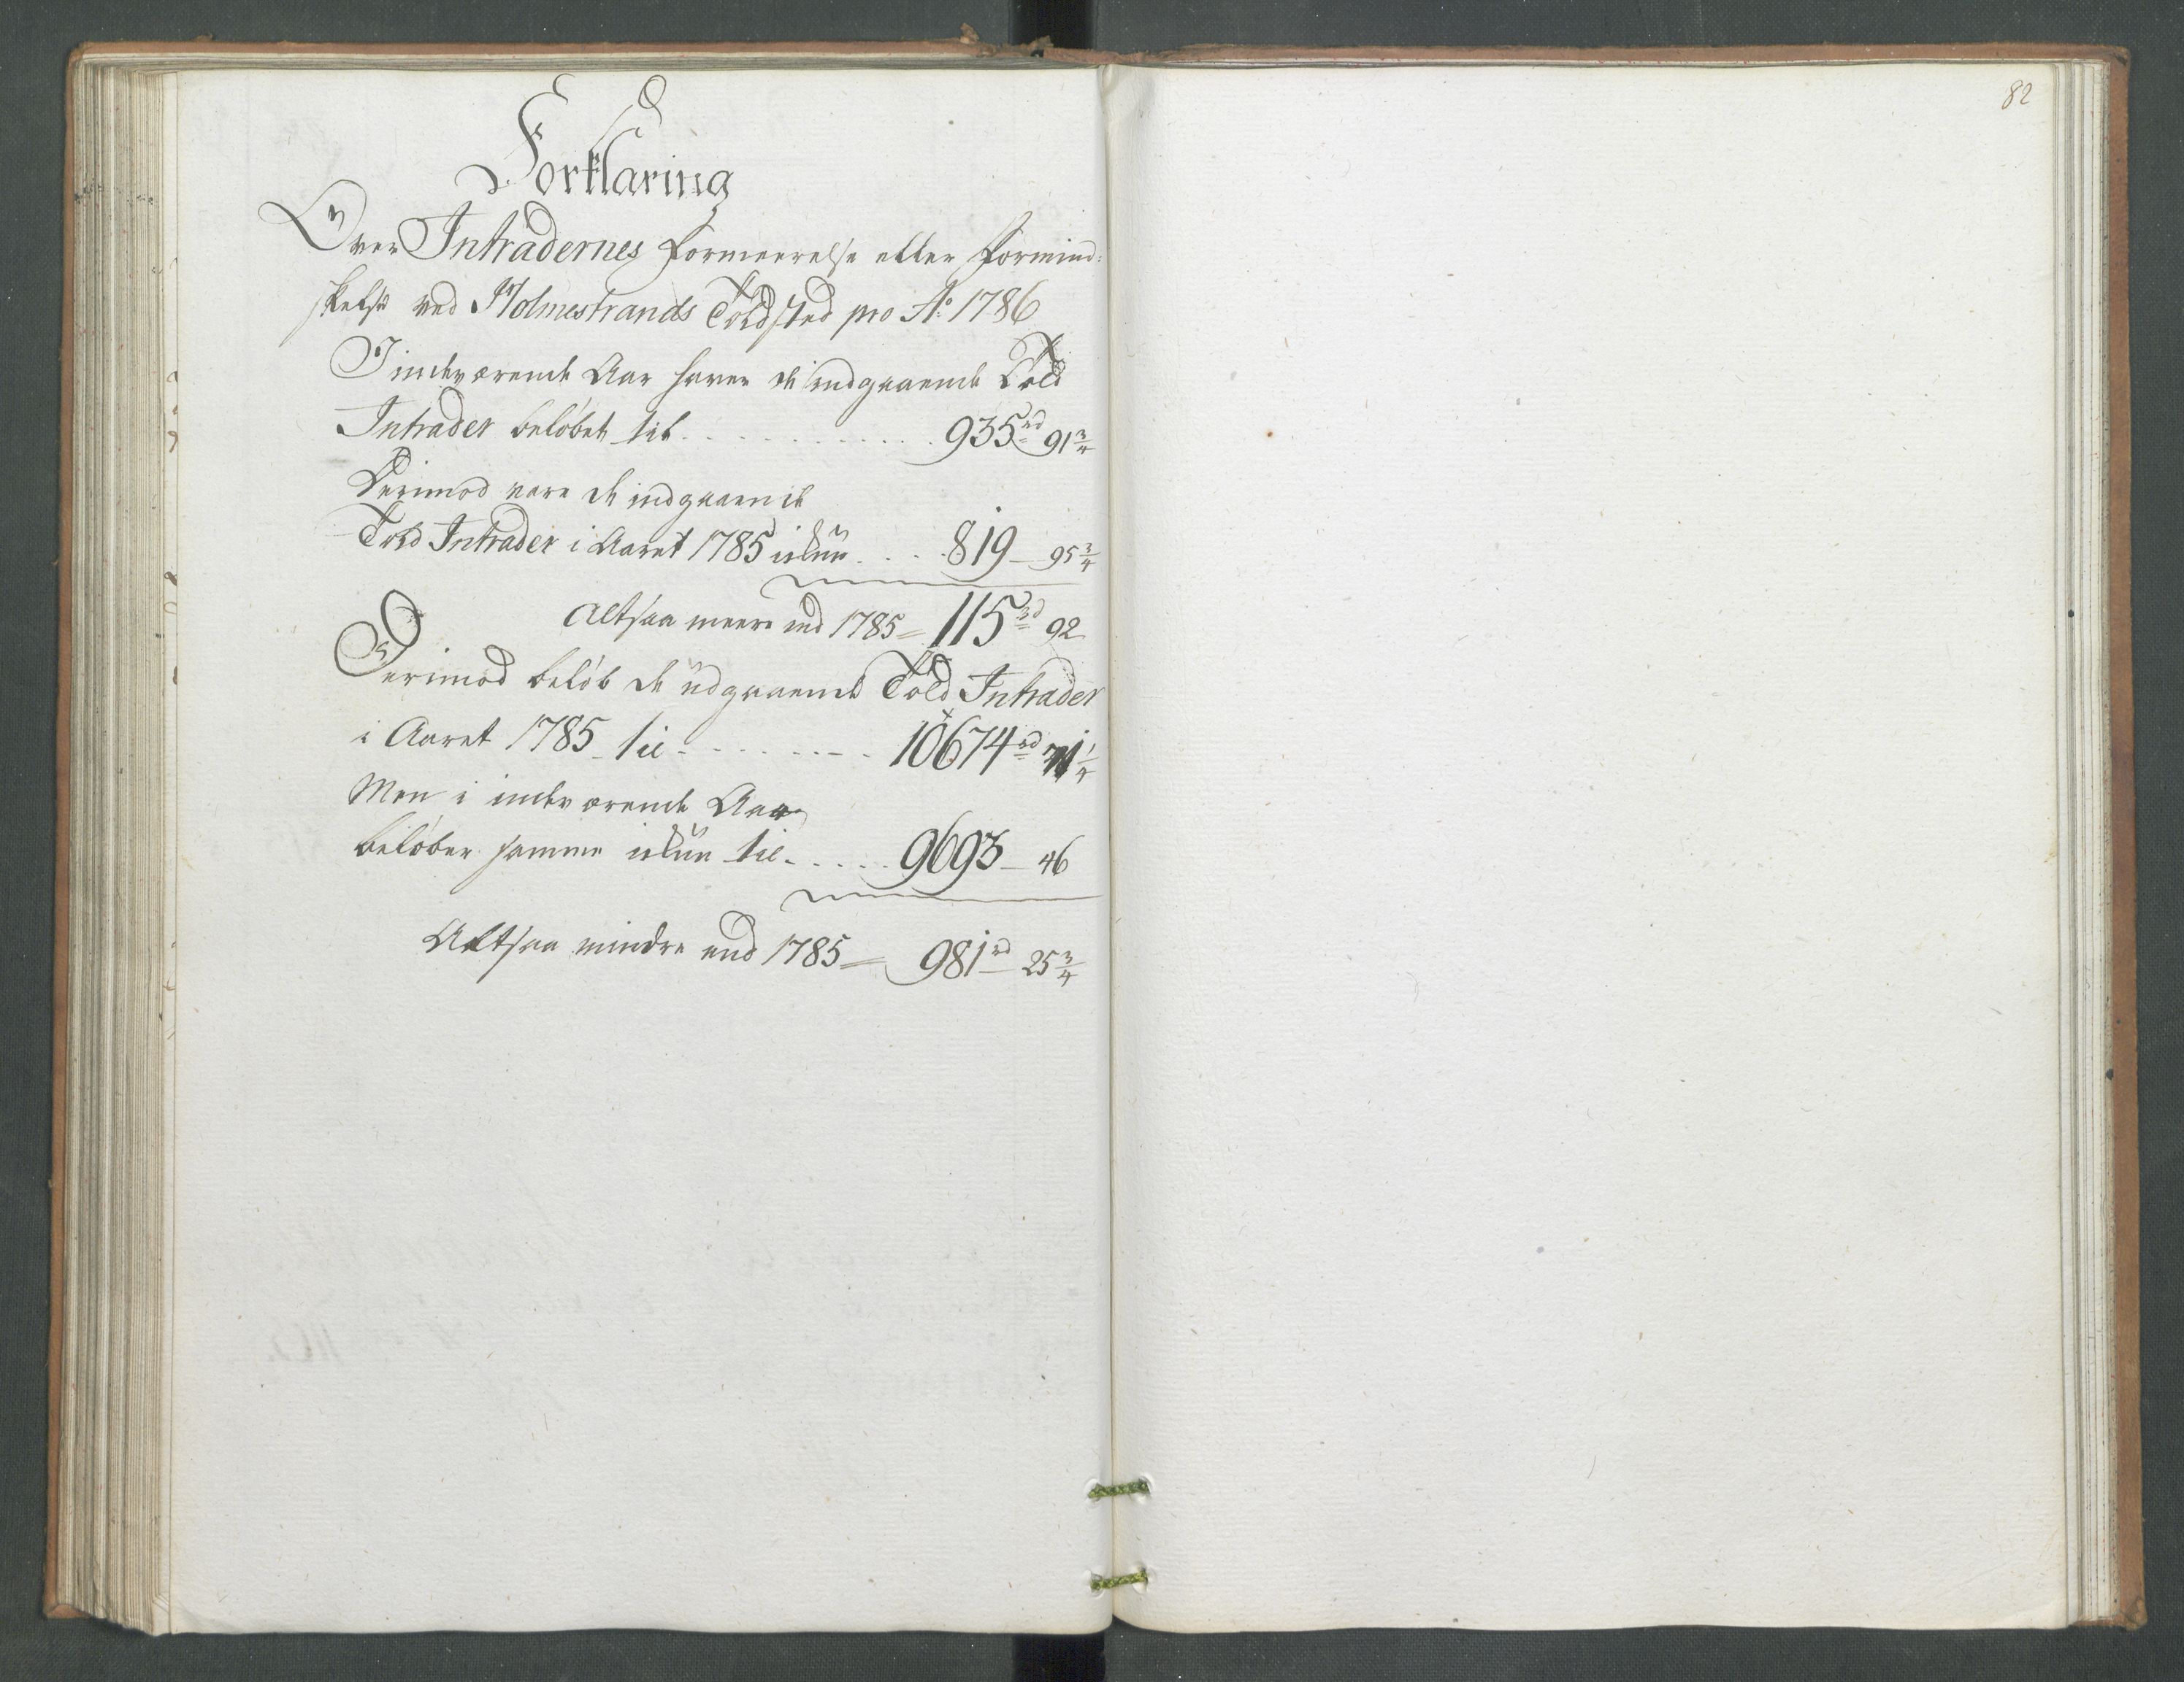 82
Forklaring
Over Intradernes formeerelse eller formind:
skelse ved Holmestrands Toldsted pro Aº 1786
I indeværende Aar haver de indgaaende Told
Intrader beløbet til . . . . . . . . . . . 935 rd 91 3/4
Derimod vare de indgaaende
Told Intrader i Aaret 1785 ickun . . . 819 – 95 3/4
Altsaa meere end 1785 = 115 rd 92
Derimod beløb de udgaaende Told Intrader
i Aaret 1785 til - - - - - - - - 10674 rd 71 3/4
Men i indeværende Aar
beløber samme ickun til - . . . . 9693 – 46
Altsaa mindre end 1785 = 981 rd 25 3/4